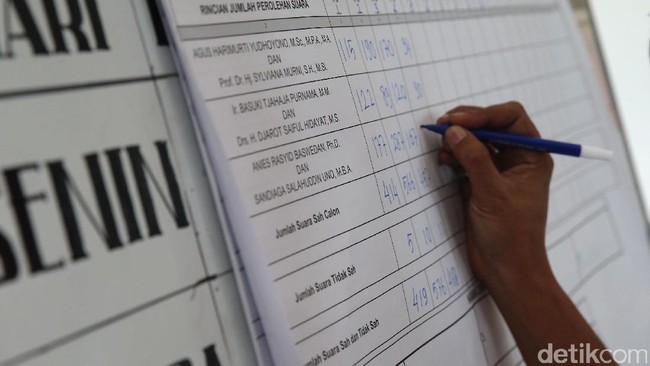 RINCIAN JUMLAH PEROLEHAN SUARA
HARI
SENIN
AGUS HARIMURTI YUDHOYONO, M.Sc., M.P.A., M.A. 115 190 170 94
DAN
Prof. Dr. Hj. SYLVIANA MURNI, S.H., M.Si.
Ir. BASUKI TJAHAJA PURNAMA, M.M. 122 89 120
DAN
Drs. H. DJAROT SAIFUL HIDAYAT, M.S.
ANIES RASYID BASWEDAN, Ph.D. 177 287
DAN
SANDIAGA SALAHUDDIN UNO, M.B.A.
Jumlah Suara Sah Calon 414 566
SENIN
Jumlah Suara Tidak Sah 5 10
Jumlah Suara Sah dan Tidak Sah 419 576
detikcom